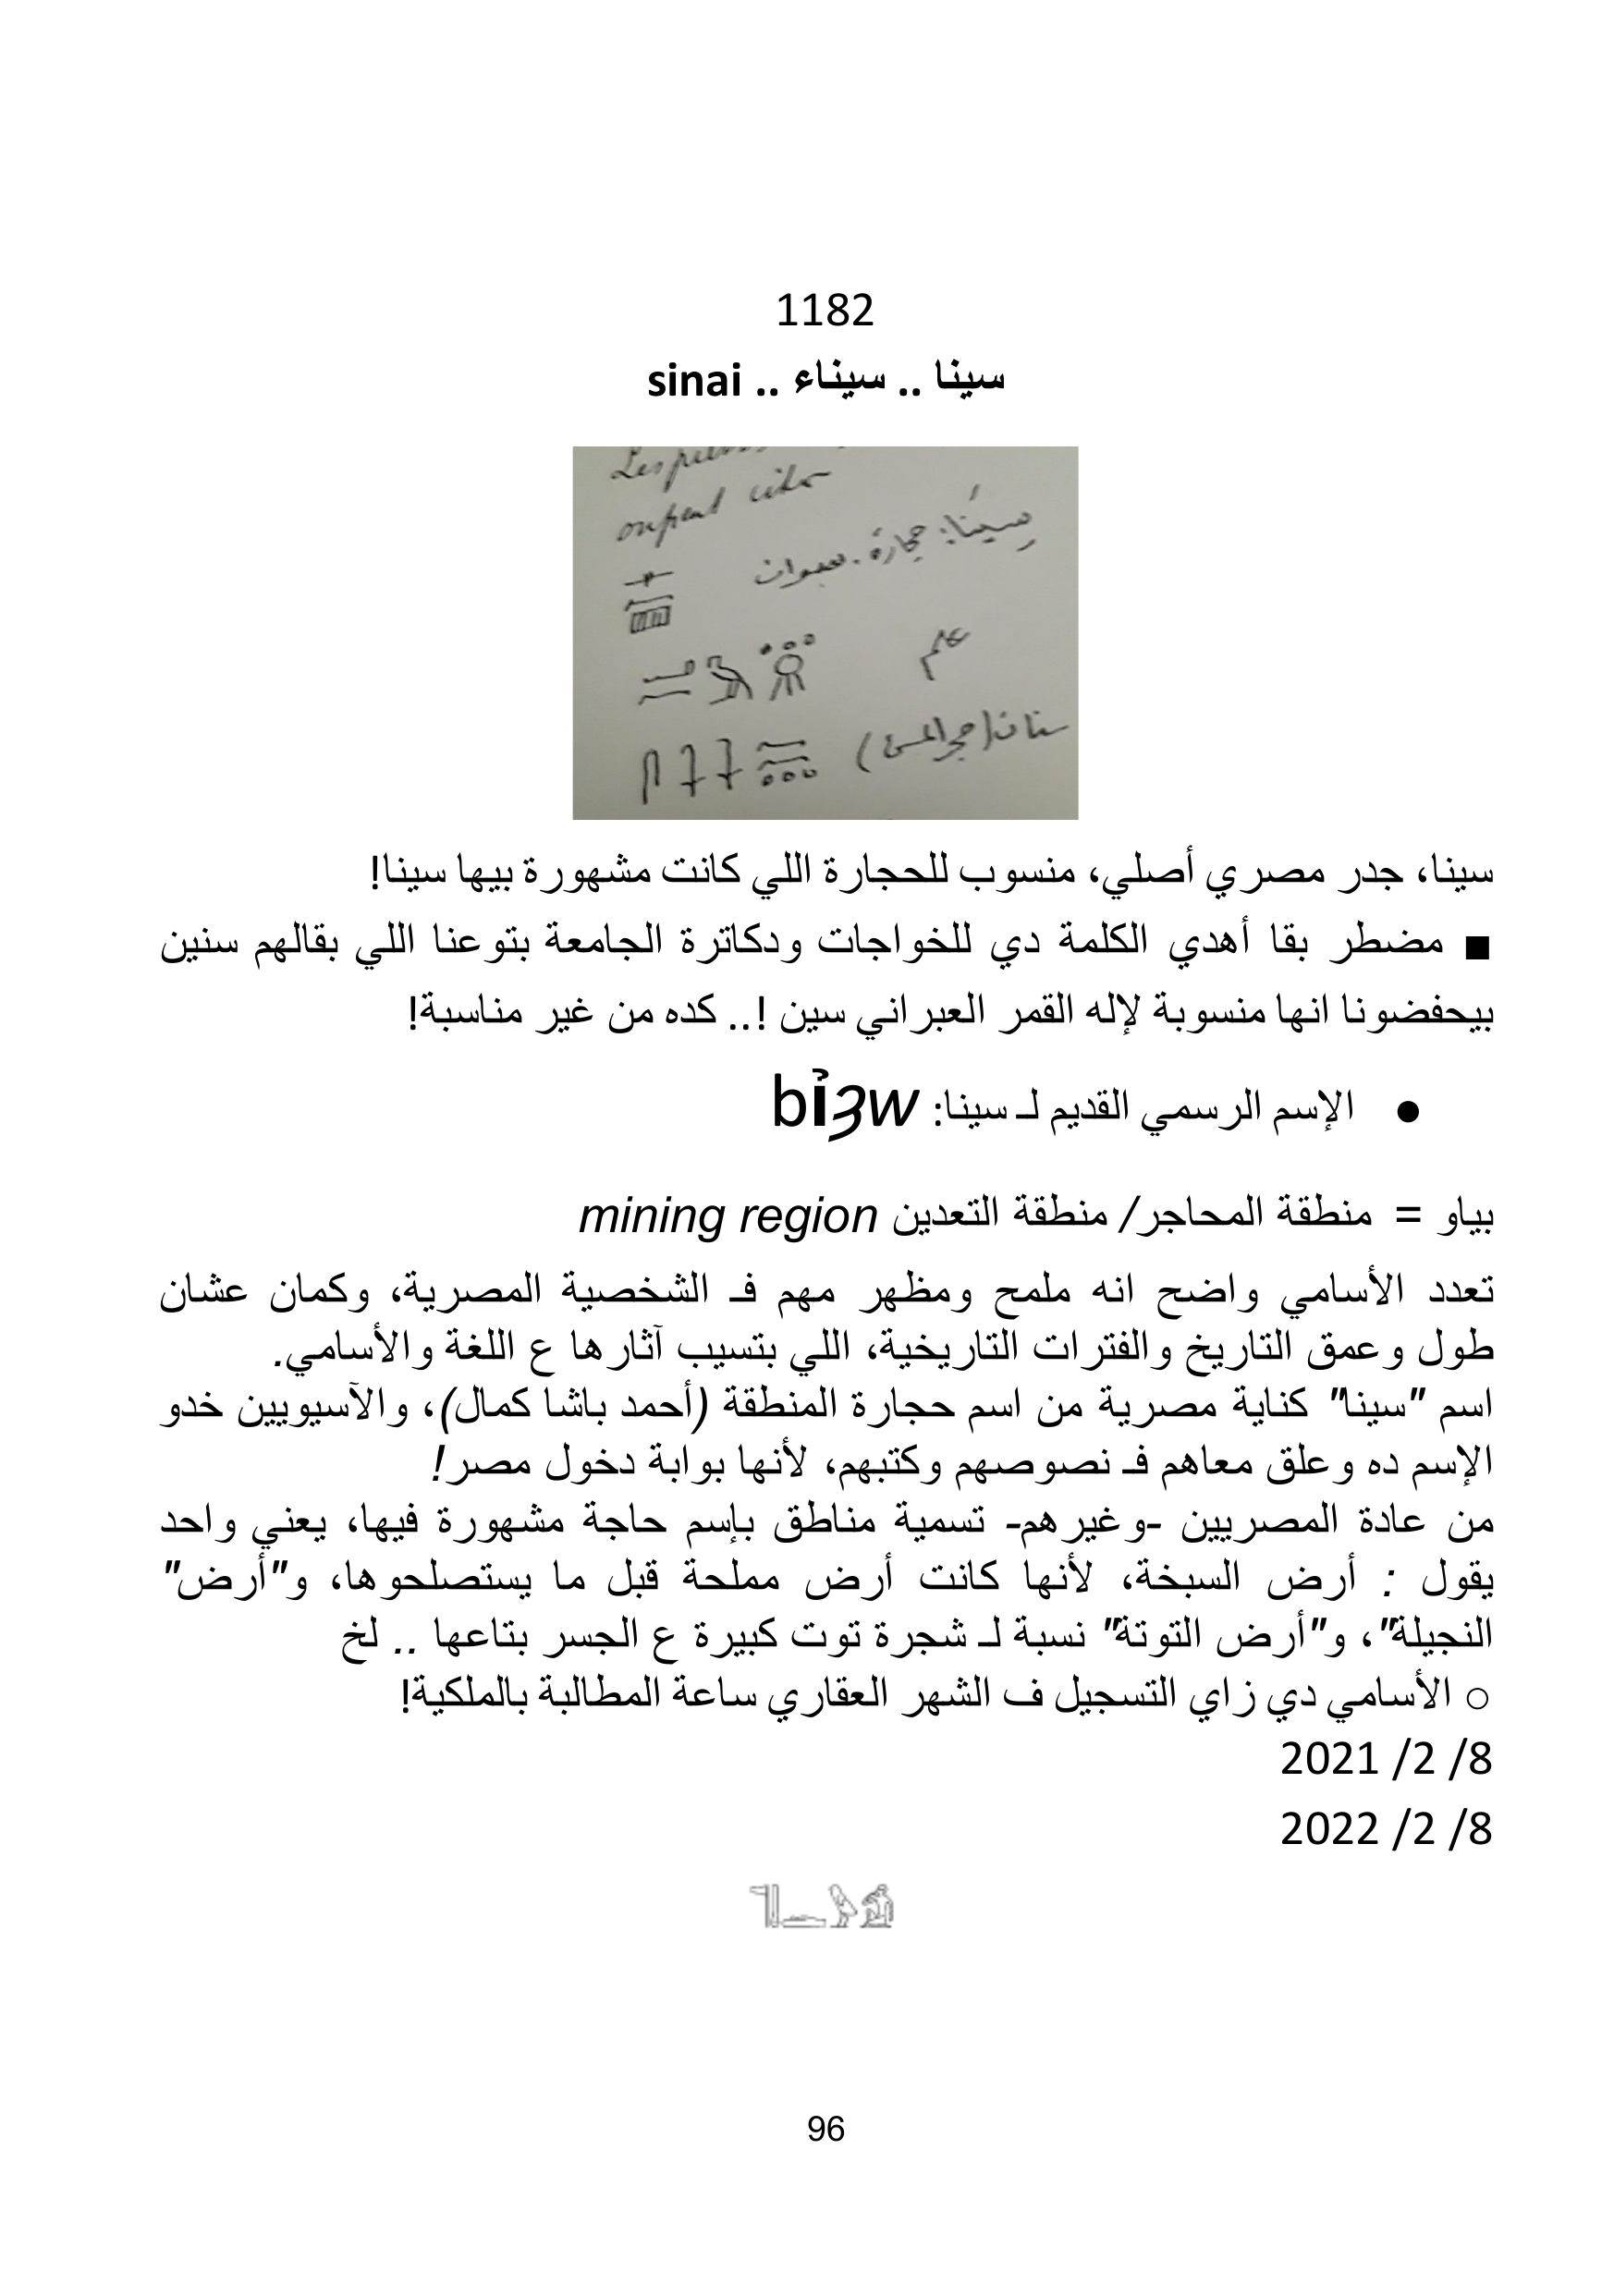 1182
سينا .. سيناء .. sinai
سينا، جدر مصري أصلي، منسوب للحجارة اللي كانت مشهورة بيها سينا!
■ مضطر بقا أهدي الكلمة دي للخواجات ودكاترة الجامعة بتوعنا اللي بقالهم سنين
بيحفضونا انها منسوبة لإله القمر العبراني سين !.. كده من غير مناسبة!
● الإسم الرسمي القديم لـ سينا: bỉꜣw
بياو = منطقة المحاجر/ منطقة التعدين mining region
تعدد الأسامي واضح انه ملمح ومظهر مهم فـ الشخصية المصرية، وكمان عشان
طول وعمق التاريخ والفترات التاريخية، اللي بتسيب آثارها ع اللغة والأسامي.
اسم "سينا" كناية مصرية من اسم حجارة المنطقة (أحمد باشا كمال)، والآسيويين خدو
الإسم ده وعلق معاهم فـ نصوصهم وكتبهم، لأنها بوابة دخول مصر!
من عادة المصريين -وغيرهم- تسمية مناطق بإسم حاجة مشهورة فيها، يعني واحد
يقول : أرض السبخة، لأنها كانت أرض مملحة قبل ما يستصلحوها، و"أرض"
النجيلة"، و"أرض التوتة" نسبة لـ شجرة توت كبيرة ع الجسر بتاعها .. لخ
○ الأسامي دي زاي التسجيل ف الشهر العقاري ساعة المطالبة بالملكية!
8/ 2/ 2021
8/ 2/ 2022
96